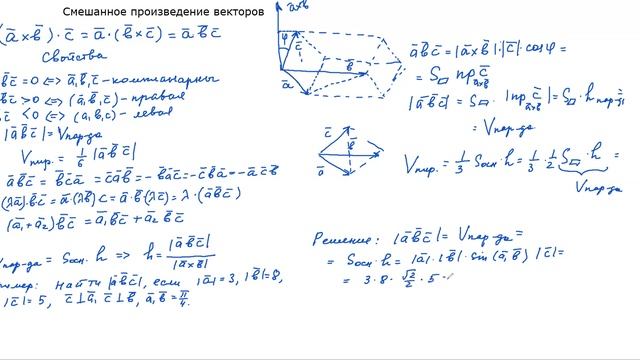 Смешанное произведение векторов
(a̅×b̅)·c̅ = a̅·(b̅×c̅) = a̅b̅c̅
Свойства
b̅c̅=0 ⇔ a̅,b̅,c̅ - компланарны
b̅c̅>0 ⇔ (a̅,b̅,c̅) - правая
c̅<0 ⇔ (a,b,c) - левая
|a̅b̅c̅| = Vпар-да
Vпир. = 1/6 |a̅b̅c̅|
a̅b̅c̅ = b̅c̅a̅ = c̅a̅b̅ = -b̅a̅c̅ = -c̅b̅a̅ = -a̅c̅b̅
(λa̅)b̅c̅ = a̅(λb̅)c̅ = a̅·b̅·(λc̅) = λ·(a̅b̅c̅)
(a̅₁+a̅₂)b̅c̅ = a̅₁b̅c̅ + a̅₂b̅c̅
Vпар-да = Sосн.·h ⇒ h = |a̅b̅c̅| / |a̅×b̅|
ример: найти |a̅b̅c̅|, если |a̅|=3, |b̅|=8,
|c̅|=5, c̅⊥a̅, c̅⊥b̅, a̅,b̅ = π/4.
a×b
φ
c̅
b̅
a̅
c̅
b̅
a̅
a̅b̅c̅ = |a̅×b̅|·|c̅|·cosφ =
= S▱ пр a̅×b̅ c̅
|a̅b̅c̅| = S▱·|пр a̅×b̅ c̅| = S▱·h пар-да =
= Vпар-да
Vпир. = 1/3 Sосн·h = 1/3·1/2 S▱·h =
Vпар-да
Решение: |a̅b̅c̅| = Vпар-да =
= Sосн·h = |a̅|·|b̅|·sin(a̅,b̅)·|c̅| =
= 3·8·√2/2·5·